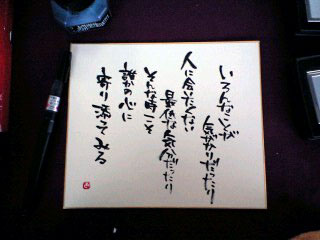 いろんなことが
気がかりだったり
人に会いたくない
最低な気分だったり
そんな時こそ
誰かの心に
寄り添ってみる